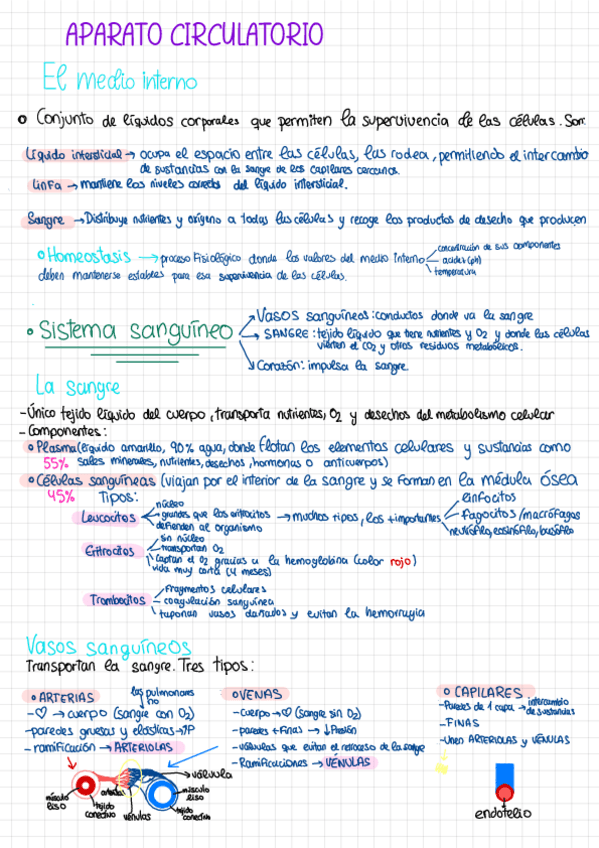 APARATO CIRCULATORIO
El medio interno
Conjunto de líquidos corporales que permiten la supervivencia de las células. Son:
Líquido intersticial → ocupa el espacio entre las células, las rodea, permitiendo el intercambio
de sustancias con la sangre de los capilares cercanos.
Linfa → mantiene los niveles correctos del líquido intersticial.
Sangre → Distribuye nutrientes y oxígeno a todas las células y recoge los productos de desecho que producen
Homeostasis → proceso fisiológico donde los valores del medio interno
concentración de sus componentes
acidez (ph)
temperatura
deben mantenerse estables para esa supervivencia de las células.
Sistema sanguíneo
Vasos sanguíneos: conductos donde va la sangre
SANGRE: tejido líquido que tiene nutrientes y O2 y donde las células
vierten el CO2 y otros residuos metabólicos.
Corazón: impulsa la sangre.
La sangre
-Único tejido líquido del cuerpo, transporta nutrientes, O2 y desechos del metabolismo celular
-Componentes:
Plasma (líquido amarillo, 90% agua, donde flotan los elementos celulares y sustancias como
55% sales minerales, nutrientes, desechos, hormonas o anticuerpos)
Células sanguíneas (viajan por el interior de la sangre y se forman en la médula ósea
45% Tipos:
Leucocitos
núcleo
grandes que los eritrocitos → muchos tipos, los + importantes
defienden al organismo
linfocitos
fagocitos/macrófagos
neutrófilo, eosinófilo, basófilo
Eritrocitos
sin núcleo
transportan O2
captan el O2 gracias a la hemoglobina (color rojo)
vida muy corta (4 meses)
Trombocitos
fragmentos celulares
coagulación sanguínea
taponan vasos dañados y evitan la hemorragia
Vasos sanguíneos
Transportan la sangre. Tres tipos:
ARTERIAS
las pulmonares no
-♡ → cuerpo (sangre con O2)
-paredes gruesas y elásticas → ↑P
-ramificación → ARTERIOLAS
VENAS
-Cuerpo → ♡ (Sangre sin O2)
-paredes + finas → ↓ Presión
-válvulas que evitan el retroceso de la sangre
-Ramificaciones → VÉNULAS
CAPILARES
-Paredes de 1 capa → intercambio de sustancias
-FINAS
-Unen ARTERIOLAS y VÉNULAS
músculo liso
tejido conectivo
vénulas
válvula
músculo liso
tejido conectivo
endotelio